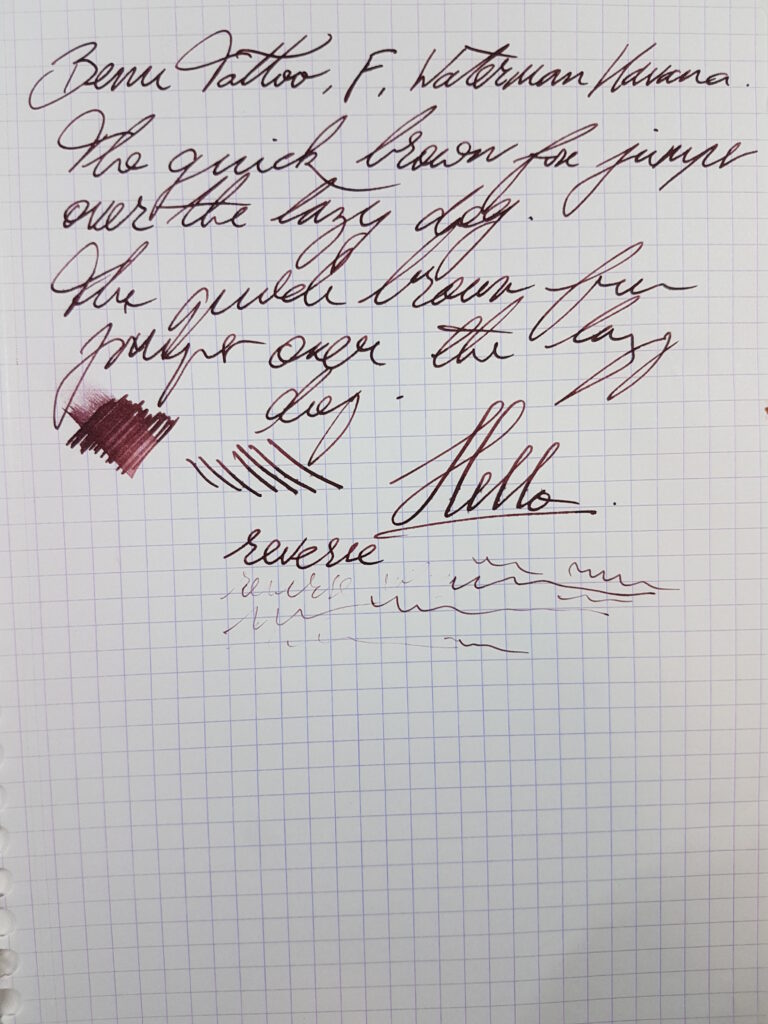 Benu Tattoo, F, Waterman Havana.
The quick brown fox jumps
over the lazy dog.
The quick brown fox
jumps over the lazy
dog.
Hello.
reverse
reverse